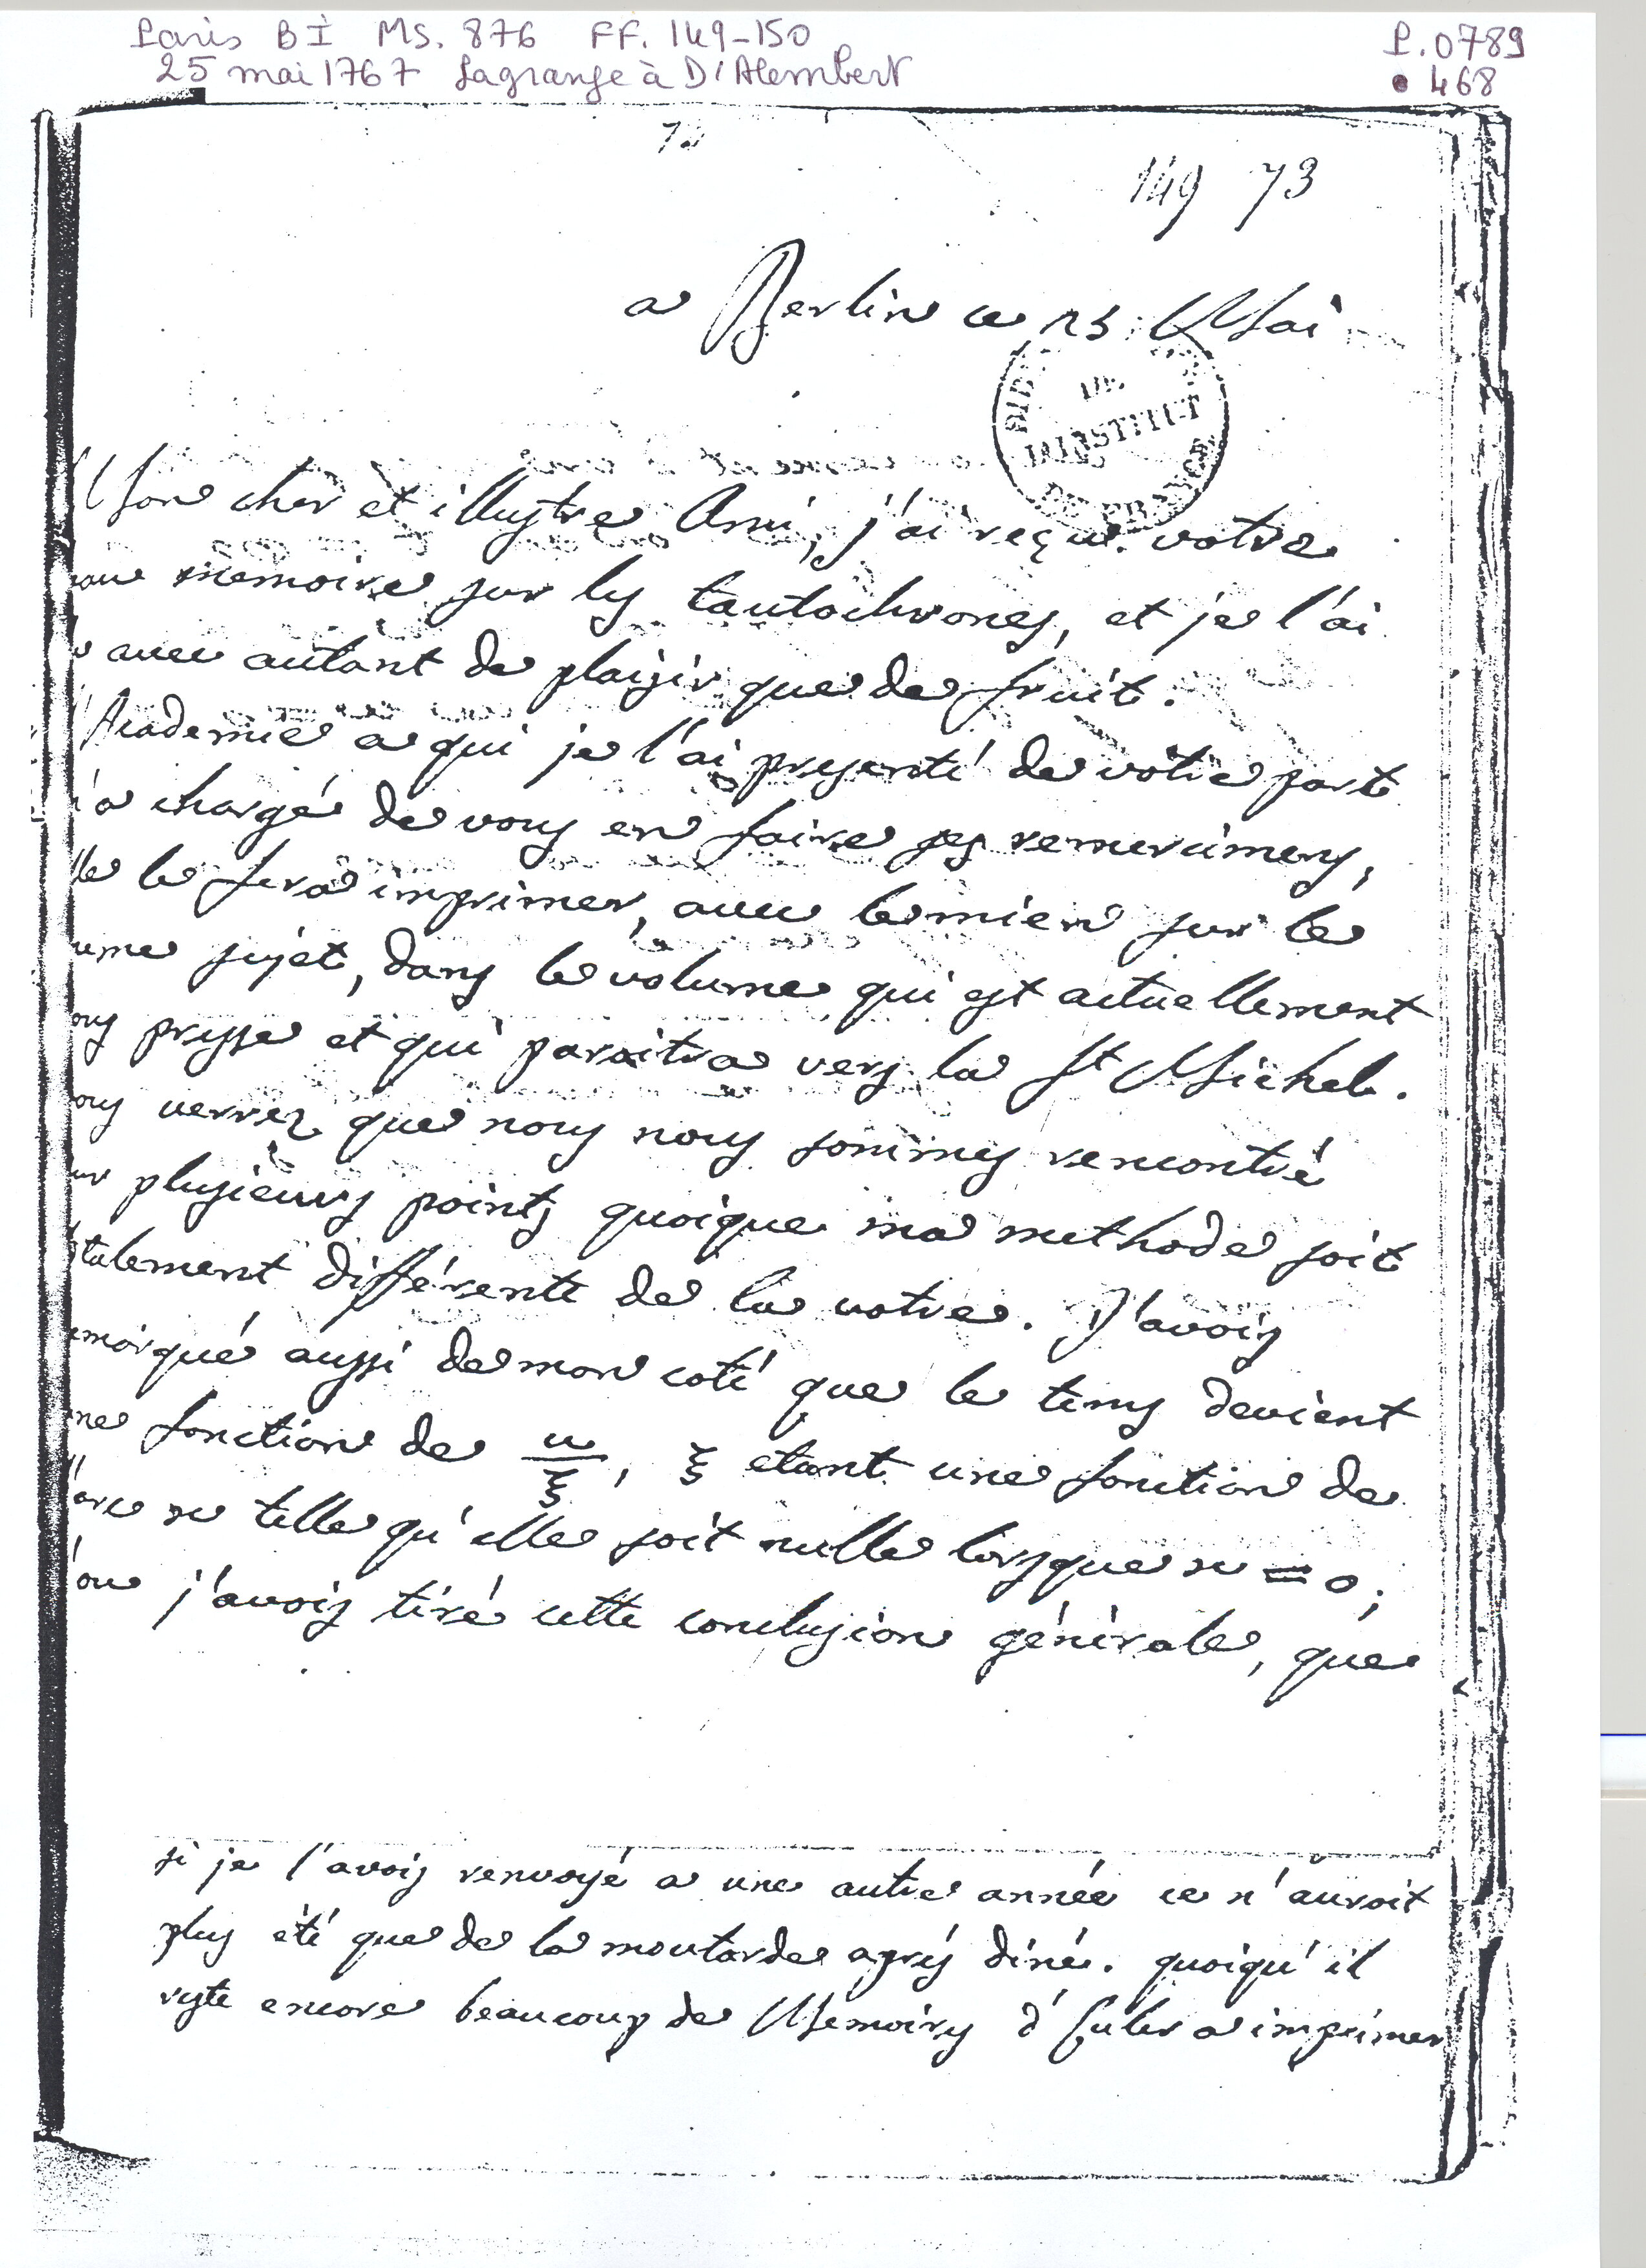 Paris BI MS. 876 FF. 149-150
P.0789
25 mai 1767 Lagrange à D'Alembert
468
149 73
a Berlin ce 25 Mai
INSTITUT
DE FRANCE
Mon cher et illustre Ami, j'ai reçu votre
eau memoire sur les tautochrones, et je l'ai
avec autant de plaisir que de fruit.
Academie a qui je l'ai presenté de votre part
'a chargé de vous en faire ses remercimens,
lle le fera imprimer, avec le mien sur le
eme sujet, dans le volume qui est actuellement
ous presse et qui paroitra vers la St Michel.
ous verrez que nous nous sommes rencontré
ur plusieurs points quoique ma methode soit
talement différente de la votre. J'avois
emarqué aussi de mon coté que le tems devient
ne fonction de u/ξ, ξ etant une fonction de
'arc x telle qu'elle soit nulle lorsque x = 0;
'ou j'avois tiré cette conclusion générale, que
si je l'avois renvoyé a une autre année ce n'auroit
plus été que de la moutarde après diné. quoiqu'il
reste encore beaucoup de Memoires d'Euler a imprimer